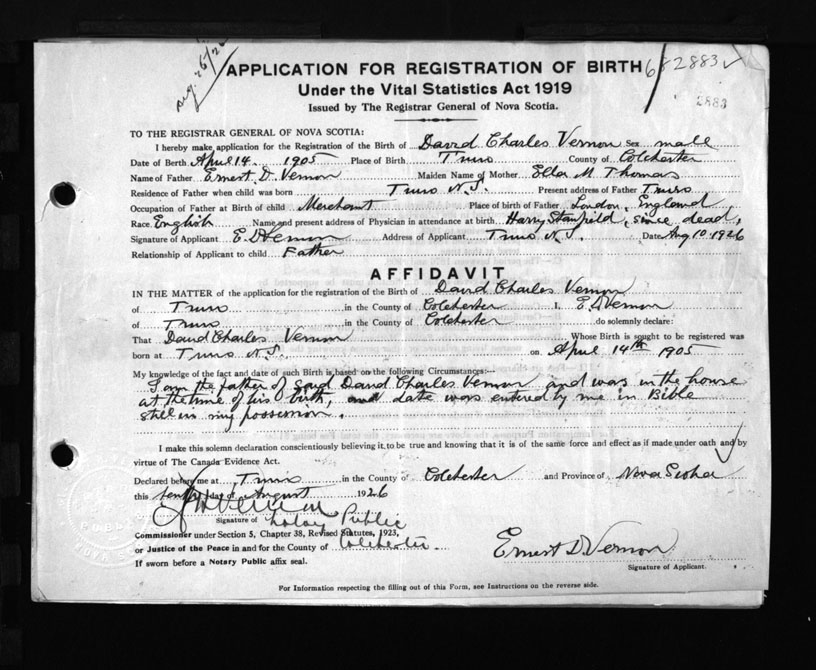 Aug. 26/26
APPLICATION FOR REGISTRATION OF BIRTH 682883
Under the Vital Statistics Act 1919
2883
Issued by The Registrar General of Nova Scotia.
TO THE REGISTRAR GENERAL OF NOVA SCOTIA:
I hereby make application for the Registration of the Birth of David Charles Vernon Sex male
Date of Birth April 14. 1905 Place of Birth Truro County of Colchester
Name of Father Ernest D. Vernon Maiden Name of Mother Ella M Thomas
Residence of Father when child was born Truro N.S. Present address of Father Truro
Occupation of Father at Birth of child Merchant Place of birth of Father London, England
Race. English Name and present address of Physician in attendance at birth Harry Stanfield, since dead,
Signature of Applicant E. D Vernon Address of Applicant Truro N.S. Date Aug 10. 1926
Relationship of Applicant to child Father
AFFIDAVIT
IN THE MATTER of the application for the registration of the Birth of David Charles Vernon
of Truro in the County of Colchester I, E. D Vernon
of Truro in the County of Colchester do solemnly declare:
That David Charles Vernon Whose Birth is sought to be registered was
born at Truro N.S. on April 14th 1905
My knowledge of the fact and date of such Birth is based on the following Circumstances:—
I am the father of said David Charles Vernon and was in the house
at the time of his birth, and date was entered by me in Bible
still in my possession.
I make this solemn declaration conscientiously believing it to be true and knowing that it is of the same force and effect as if made under oath and by
virtue of The Canada Evidence Act.
Declared before me at Truro in the County of Colchester and Province of Nova Scotia
this tenth day of August 1926
Signature of Notary Public
Commissioner under Section 5, Chapter 38, Revised Statutes, 1923,
or Justice of the Peace in and for the County of Colchester
If sworn before a Notary Public affix seal.
Ernest D. Vernon
Signature of Applicant.
For Information respecting the filling out of this Form, see Instructions on the reverse side.